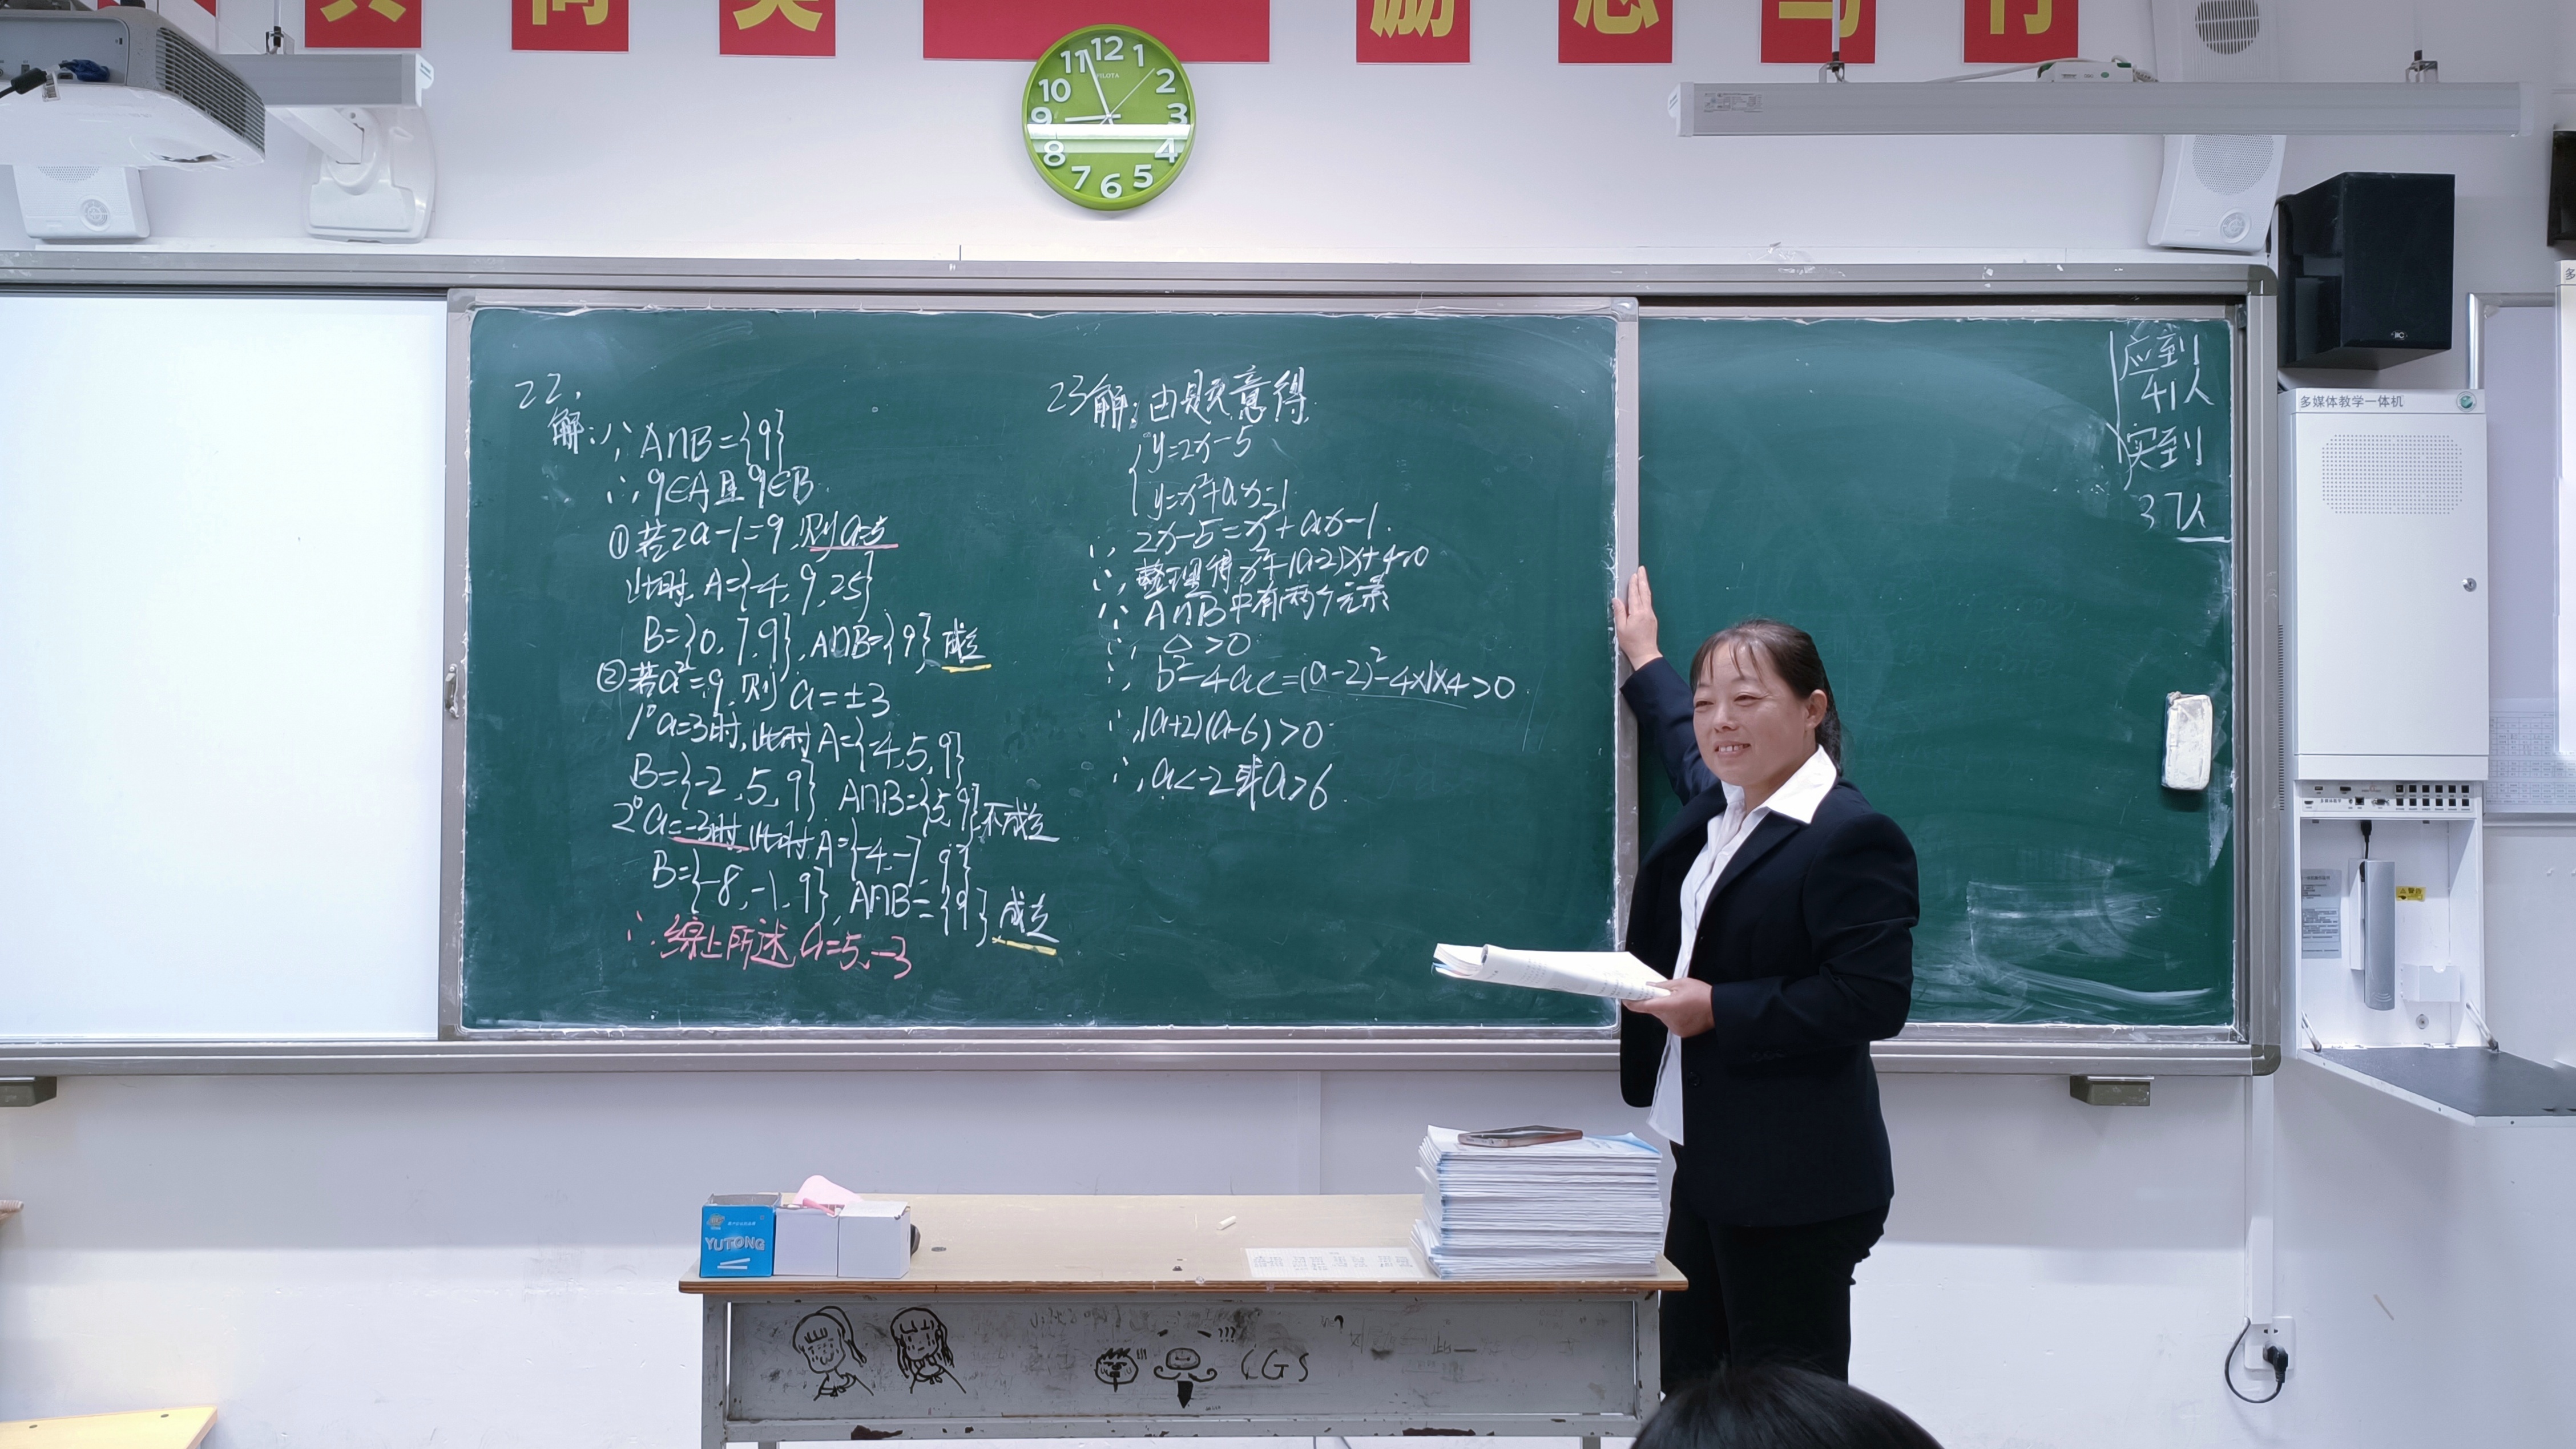 励志
12
11
1
10
2
9
3
8
4
7
6
5
22.
解:∵A∩B={9}
∴9∈A且9∈B.
①若2a-1=9,则a=5
此时A={-4,9,25}
B={0,-7,9},A∩B={9}成立
②若a²=9,则a=±3
1°a=3时,此时A={-4,5,9}
B={-2,5,9} A∩B={5,9}不成立
2°a=-3时,此时A={-4,-7,9}
B={-8,-1,9},A∩B={9}成立
∴综上所述,a=5,-3
23解:由题意得
y=2x-5
y=x²+ax-1
∴2x-5=x²+ax-1.
∴整理得x²+(a-2)x+4=0
∵A∩B中有两个元素
∴△>0
∴b²-4ac=(a-2)²-4×1×4>0
∴(a+2)(a-6)>0
∴a<-2或a>6
应到
41人
实到
37人
多媒体教学一体机
YUTONG
CGS